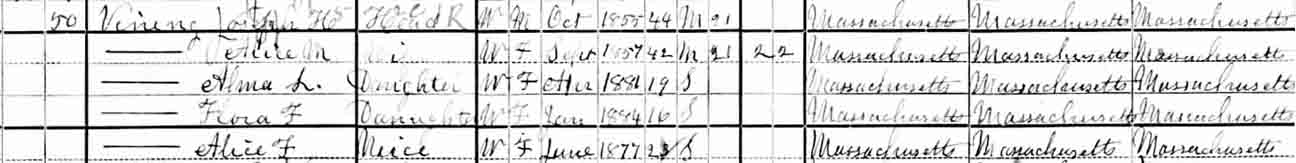 50 Vining H Head R W M Oct 1855 44 M 21 Massachusetts Massachusetts Massachusetts
—— Alice M W F Sept 1857 42 M 21 2 2 Massachusetts Massachusetts Massachusetts
—— Alma L. Daughter W F 1881 19 S Massachusetts Massachusetts Massachusetts
—— Flora F Daughter W F Jan 1884 16 S Massachusetts Massachusetts Massachusetts
—— Alice F Neice W F June 1877 S Massachusetts Massachusetts Massachusetts